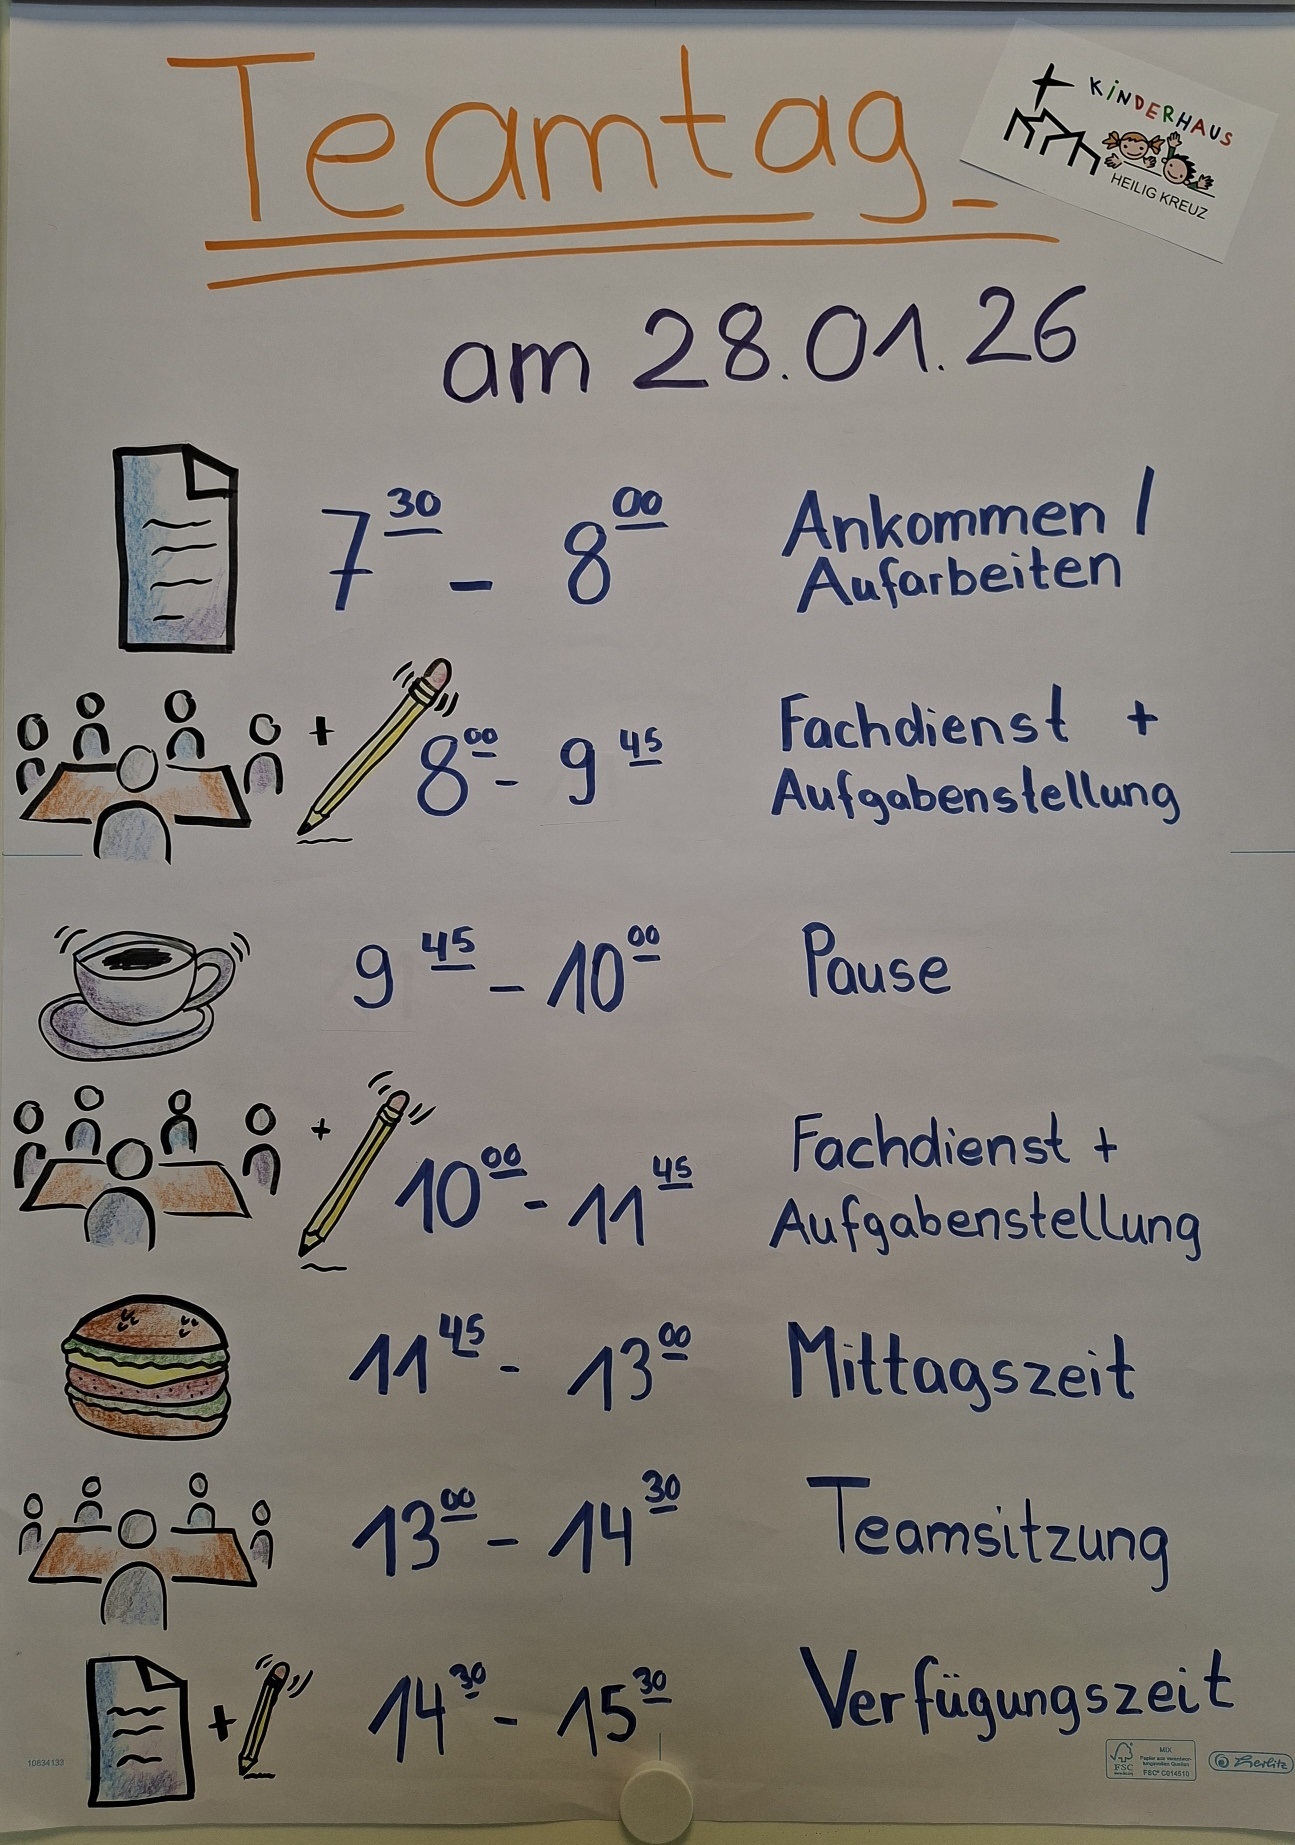 Teamtag
KINDERHAUS
HEILIG KREUZ
am 28.01.26
7 30 - 8 00 Ankommen /
Aufarbeiten
+ 8 00 - 9 45 Fachdienst +
Aufgabenstellung
9 45 - 10 00 Pause
+ 10 00 - 11 45 Fachdienst +
Aufgabenstellung
11 45 - 13 00 Mittagszeit
13 00 - 14 30 Teamsitzung
+ 14 30 - 15 30 Verfügungszeit
10834133
FSC
MIX
Papier aus verantwor-
tungsvollen Quellen
FSC® C014510
Herlitz